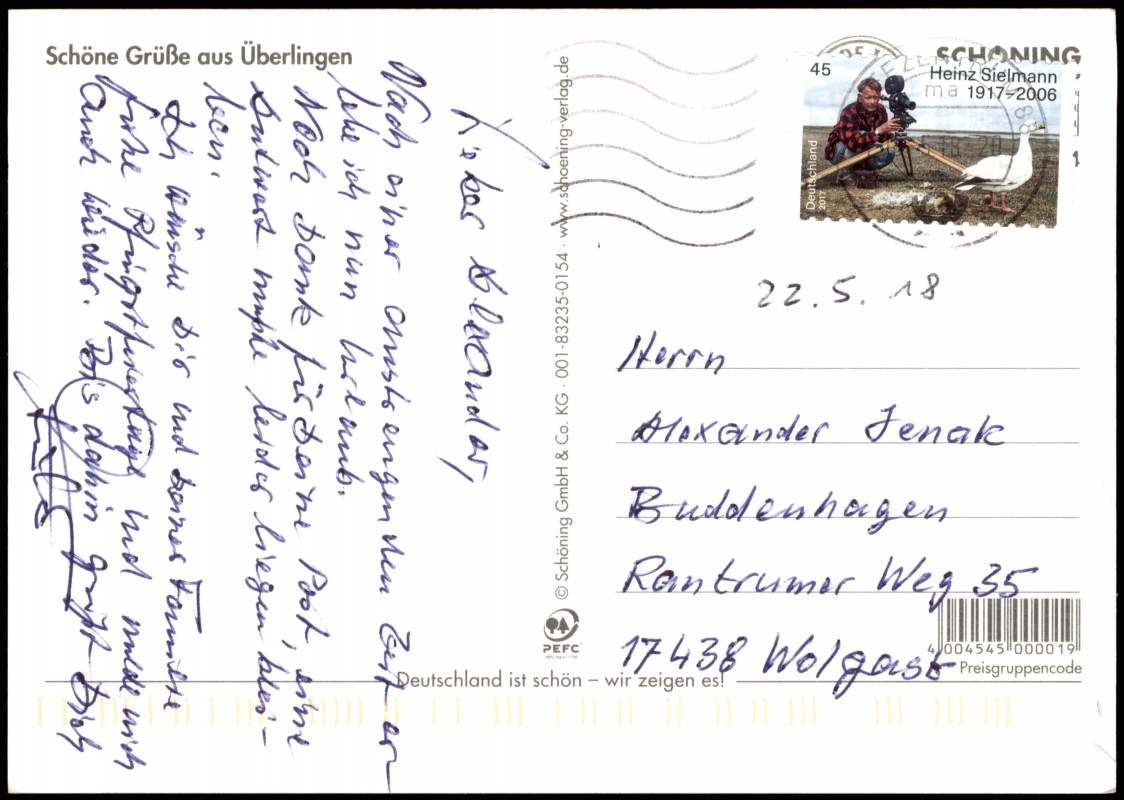 Schöne Grüße aus Überlingen
Lieber Alexander,
Nach einer anstrengenden Zeit er-
lebe ich nun Urlaub.
Noch Dank für Deine Post, eine
Antwort mußte leider liegen blei-
ben.
Ich wünsche Dir und Deiner Familie
frohe Pfingstfeiertage und melde mich
auch wieder. Bis dahin grüßt Dich
© Schöning GmbH & Co. KG · 001-83235-0154 · www.schoening-verlag.de
PEFC
SCHÖNING
45
Heinz Sielmann
1917–2006
Deutschland
22.5.18
Herrn
Alexander Jenak
Buddenhagen
Rantrumer Weg 35
17438 Wolgast
4 004545 000019
Preisgruppencode
Deutschland ist schön – wir zeigen es!